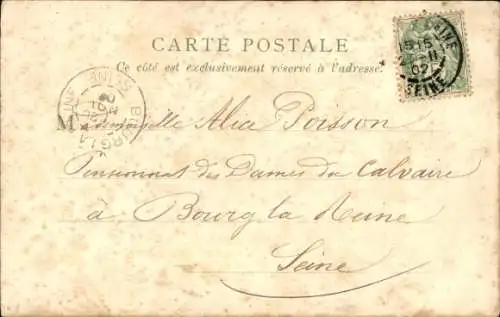 CARTE POSTALE
Ce côté est exclusivement réservé à l'adresse.
15 15
02
SEINE
Mademoiselle Alice Poisson
Pensionnat des Dames du Calvaire
à Bourg la Reine
Seine